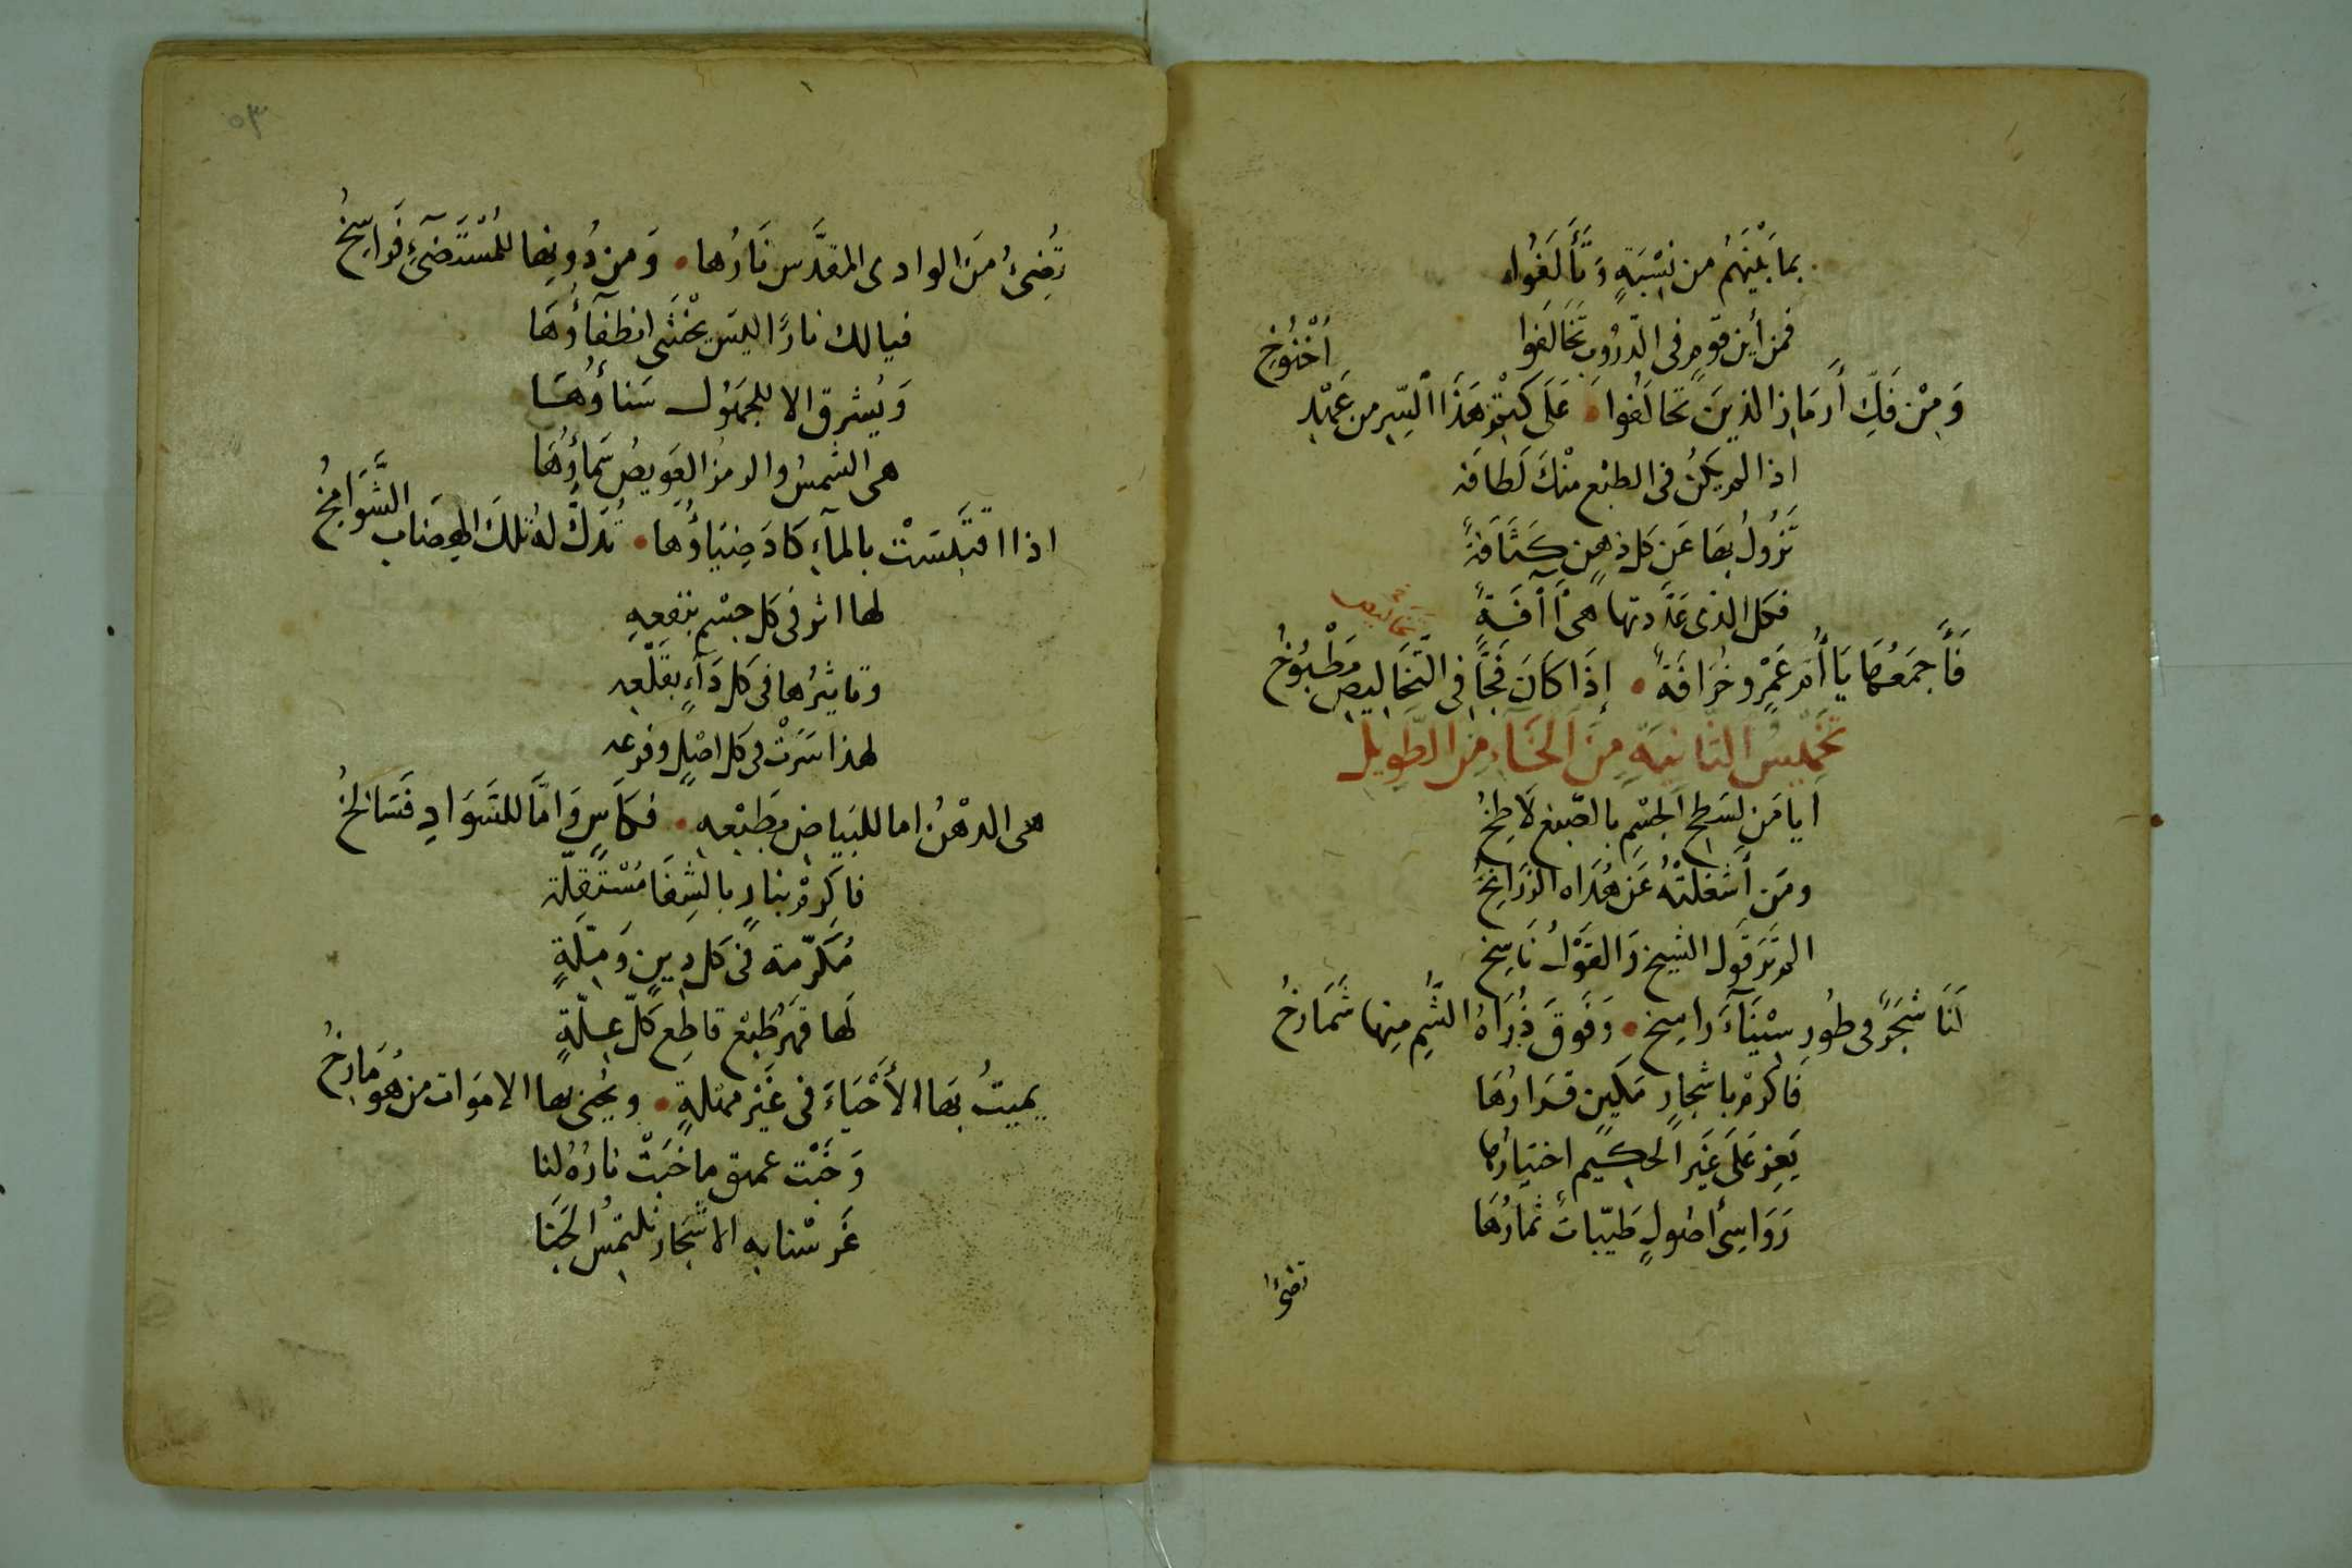 بمَا بَيْنَهُم من نِسْبَةٍ وَتَأَلَفُوا
فمن أين قومٍ فى الدّرُوب تخَالَفوا
وَمِنْ فَكِّ أَرمَازِ الذينَ تحالَفُوا • عَلَى كَتْمِ هَذَا السِّر من عَهْدِ أُخْنُوخِ
اذا لم يَكُنْ فى الطبْع مِنْكَ لَطافَة
تَزُولُ بهَا عَن كل ذهنٍ كَثَافَةٌ
فكل الذى عَدَّدتها هىَ آفَةٌ
فَأَجمَعُهَا يَا أُمَّ عَمْرٍو خُرَافَةٌ • إِذَا كَانَ فَجًّا فى التَّخَاليصِ مَطْبُوخُ
تَخْمِيسُ الثَّانِيَةِ مِنَ الخَاءِ مِنَ الطَّوِيلِ
ايا مَن لسَطحِ الجسْمِ بالصّبغ لَاطِخُ
ومَن أَشْغَلَتْهُ عَن هُدَاه الزرَانِخُ
الم تَرَ قَول الشيخ وَالقَوْلُ نَاسِخ
لَنَا شَجَرٌ فى طُورِ سِيْنَآءَ راسِخ • وَفَوقَ ذُرَاهُ الشُّمِ مِنها شَمَارخُ
فَاكرمْ باشجارٍ مَكينٍ قَرَارُهَا
يَعِز عَلَى غَيرِ الحكيم اختيارُها
رَوَاسِىْ أصُولٍ طَيّبات ثمارُهَا
تضئُ
٥٣
تُضىءُ مَنَ الوادى المقدَّس نَارُها • وَمن دُونِها للمُسْتَضىءِ فَرَاسِخُ
فيا لك نارًا ليسَ يخْشَى انطفآؤُهَا
وَيُشرق الا للجهُول سَناؤُهَا
هى الشمسُ والرمزُ العَويصُ سَماؤُهَا
اذا اقتَبَسَتْ بالمآءِ كَادَ ضِيَاؤُها • تُدَكُّ لهُ تلكَ الهِضَاب الشَّوَامخُ
لها اثر فى كل جسْم بنفعِهِ
وتاثيرُها فى كل دَآءٍ بقَلْعِه
لهذا سَرَتْ فى كل اصْلٍ وفرعه
هى الدهْنُ اما للبَيَاض بطَبْعِهِ • فكاسٍ وَامَّا للسَّوَادِ فَسَالخُ
فاكرمْ بنارٍ بالشِفَا مُسْتَقِلّة
مُكَرّمة فى كل دِينٍ وَمِلّةٍ
لَها قهرُ طَبْع قاطِع كلّ عِلّةٍ
يميتُ بهَا الأَحْيَاءَ فى غَيْر مهلةٍ • ويُحيى بها الاموَات من هُوَ مَارخُ
وَخَبْت عميق ما خَبَتْ نارُهُ لنا
غَرسْنا به الاشْجَار نلتمسُ الجَنَا